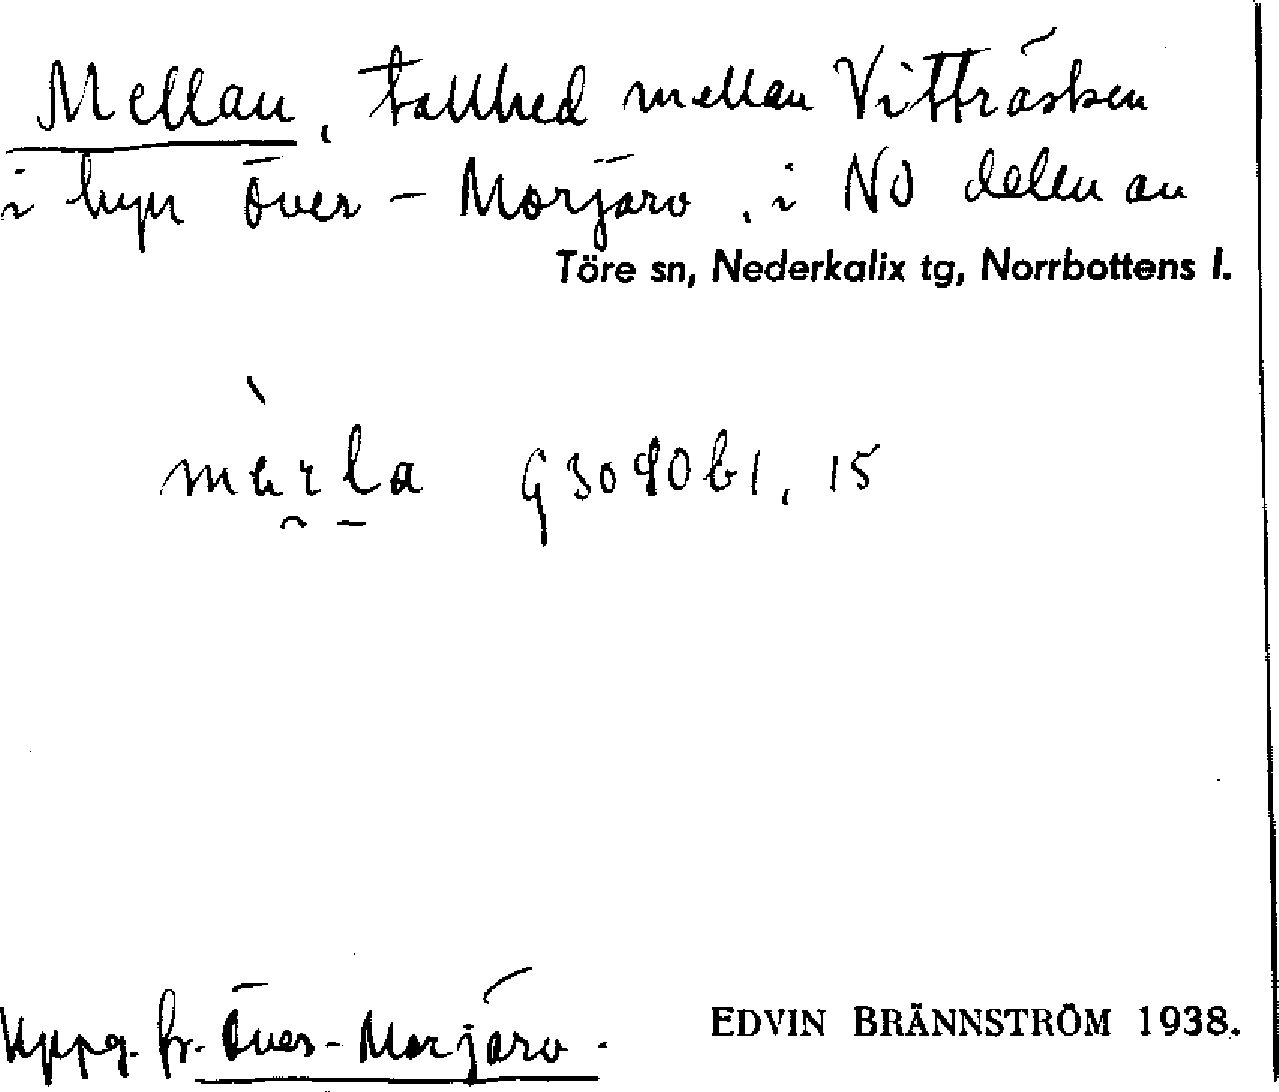 Mellan, tallhed mellan Vitträsken
i byn Över-Morjärv, i NO delen av
Töre sn, Nederkalix tg, Norrbottens l.
15
Uppg. fr. Över-Morjärv.
EDVIN BRÄNNSTRÖM 1938.